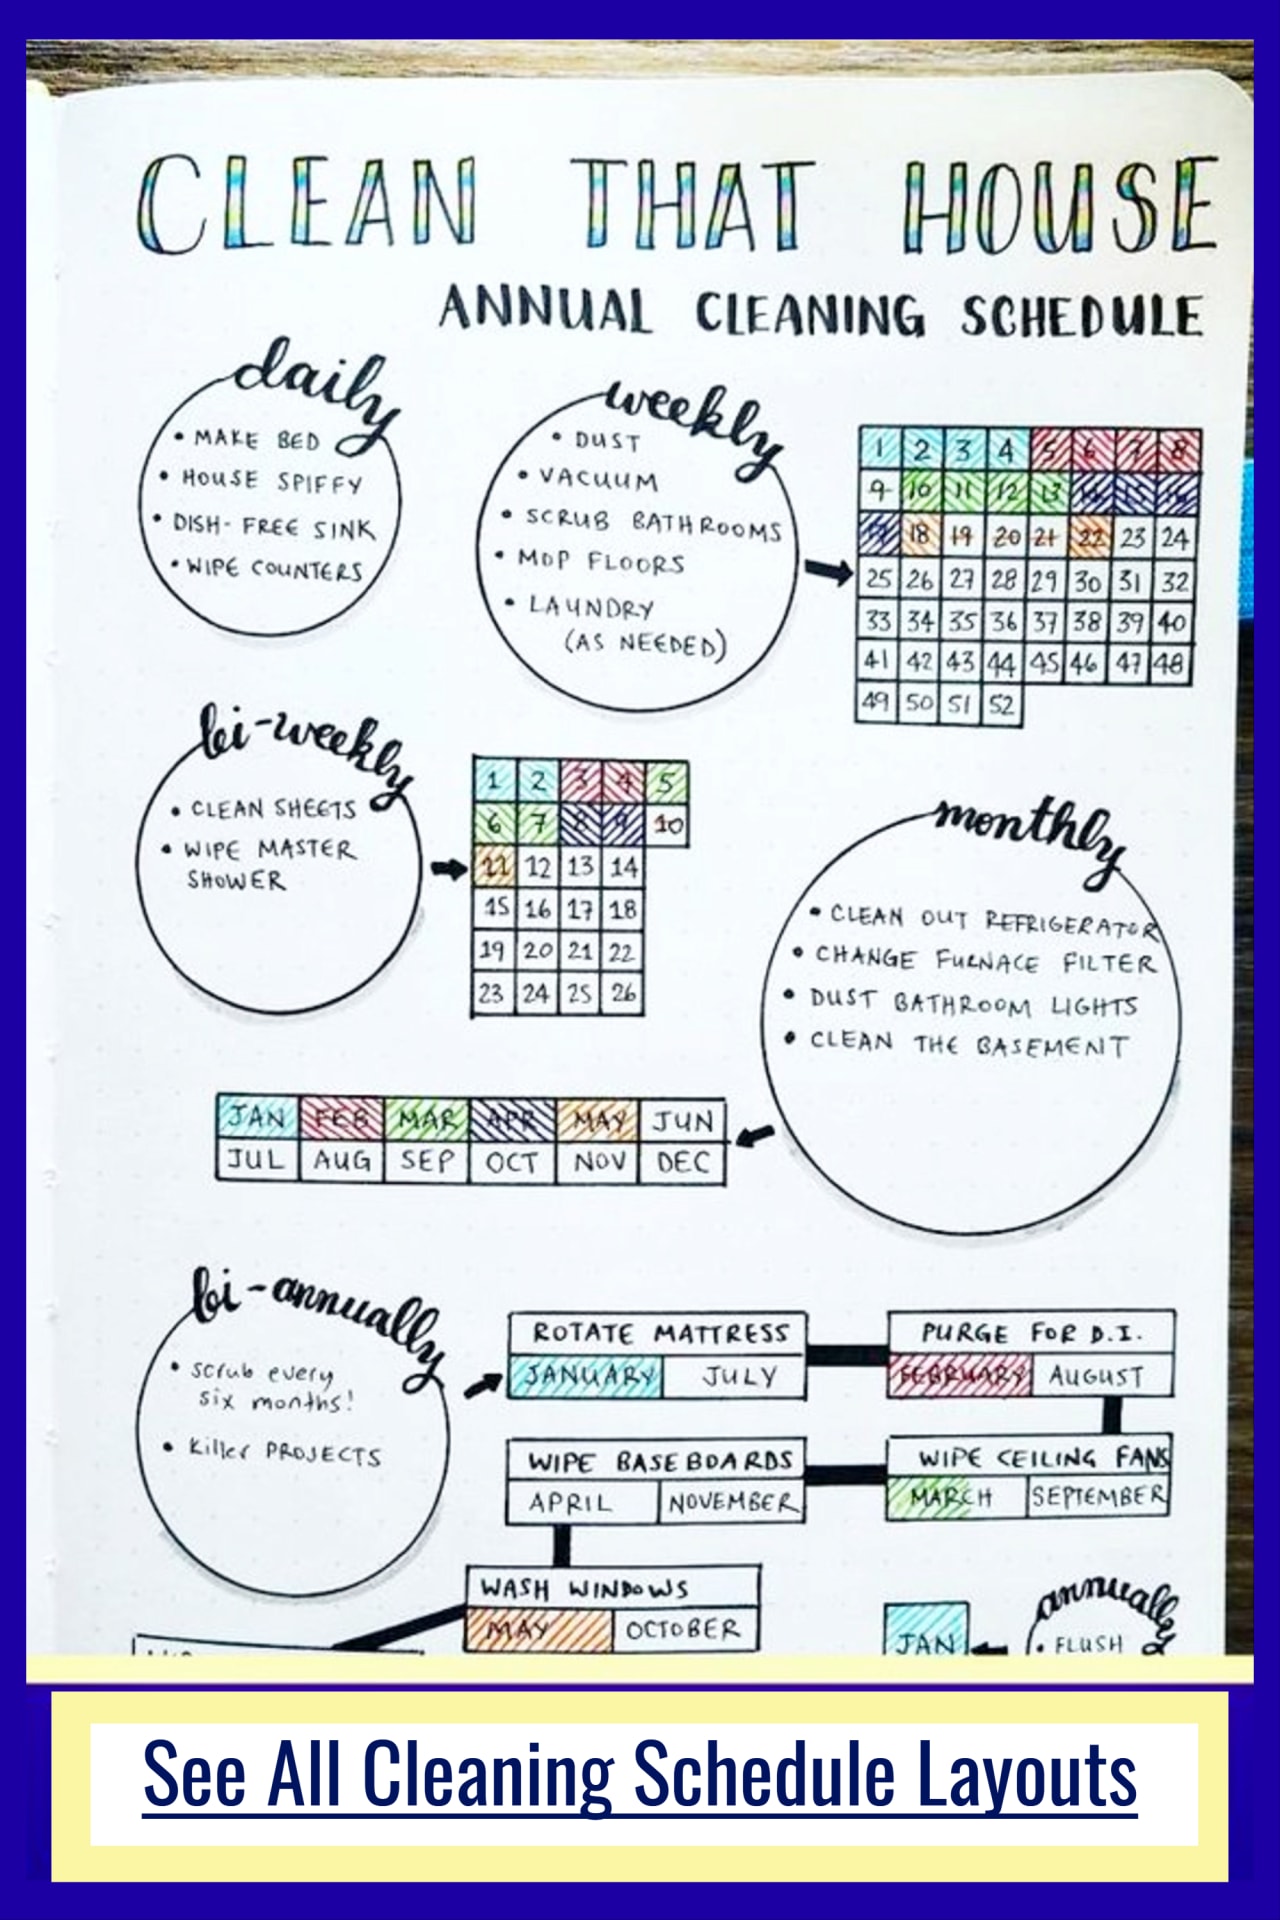 CLEAN THAT HOUSE
ANNUAL CLEANING SCHEDULE
daily
• MAKE BED
• HOUSE SPIFFY
• DISH-FREE SINK
• WIPE COUNTERS
weekly
• DUST
• VACUUM
• SCRUB BATHROOMS
• MOP FLOORS
• LAUNDRY
(AS NEEDED)
1 2 3 4 5 6 7 8
9 10 11 12 13 14 15 16
17 18 19 20 21 22 23 24
25 26 27 28 29 30 31 32
33 34 35 36 37 38 39 40
41 42 43 44 45 46 47 48
49 50 51 52
bi-weekly
• CLEAN SHEETS
• WIPE MASTER
SHOWER
1 2 3 4 5
6 7 8 9 10
11 12 13 14
15 16 17 18
19 20 21 22
23 24 25 26
monthly
• CLEAN OUT REFRIGERATOR
• CHANGE FURNACE FILTER
• DUST BATHROOM LIGHTS
• CLEAN THE BASEMENT
JAN FEB MAR APR MAY JUN
JUL AUG SEP OCT NOV DEC
bi-annually
• scrub every
six months!
• Killer PROJECTS
ROTATE MATTRESS
JANUARY JULY
PURGE FOR D.I.
FEBRUARY AUGUST
WIPE BASEBOARDS
APRIL NOVEMBER
WIPE CEILING FANS
MARCH SEPTEMBER
WASH WINDOWS
MAY OCTOBER
annually
JAN
• FLUSH
See All Cleaning Schedule Layouts